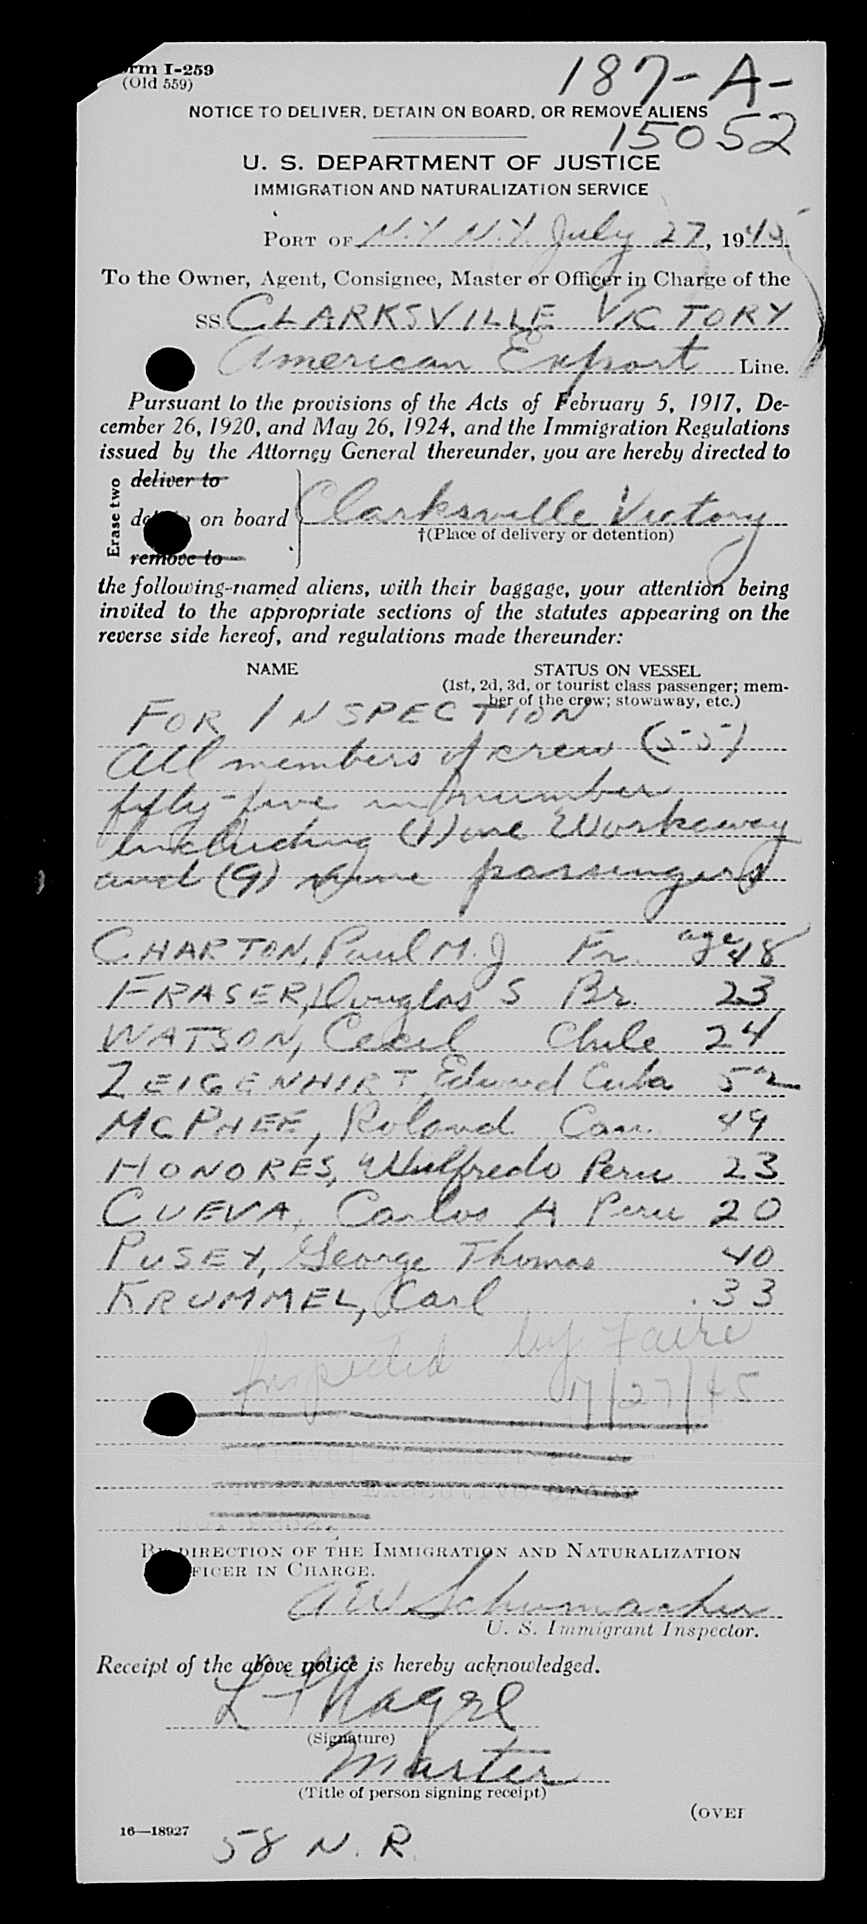 rm I-259
(Old 559)
187-A-
15052
NOTICE TO DELIVER, DETAIN ON BOARD, OR REMOVE ALIENS
U. S. DEPARTMENT OF JUSTICE
IMMIGRATION AND NATURALIZATION SERVICE
PORT OF N.Y. N.Y. July 27, 1945.
To the Owner, Agent, Consignee, Master or Officer in Charge of the
SS CLARKSVILLE VICTORY
American Export Line.
Pursuant to the provisions of the Acts of February 5, 1917, De-
cember 26, 1920, and May 26, 1924, and the Immigration Regulations
issued by the Attorney General thereunder, you are hereby directed to
Erase two
deliver to
on board Clarksville Victory
†(Place of delivery or detention)
remove to
the following-named aliens, with their baggage, your attention being
invited to the appropriate sections of the statutes appearing on the
reverse side hereof, and regulations made thereunder:
NAME STATUS ON VESSEL
(1st, 2d, 3d, or tourist class passenger; mem-
ber of the crew; stowaway, etc.)
FOR INSPECTION
All members of crew (55)
fifty-five in number
including (1) one Workaway
and (9) nine passengers
CHARTON, Paul M. J Fr. age 48
FRASER, Douglas S Br. 23
WATSON, Cecil Chile 24
ZEIGENHIRT, Edward Cuba 52
MCPHEE, Roland Can. 49
HONORES, Wulfredo Peru 23
CUEVA, Carlos A Peru 20
PUSEY, George Thomas 40
KRUMMEL, Carl 33
Inspected by Faire
7/27/45
BY DIRECTION OF THE IMMIGRATION AND NATURALIZATION
FICER IN CHARGE.
A W Schumacher
U. S. Immigrant Inspector.
Receipt of the above notice is hereby acknowledged.
L F Nagel
(Signature)
Master
(Title of person signing receipt)
(OVER
16—18927
58 N. R.